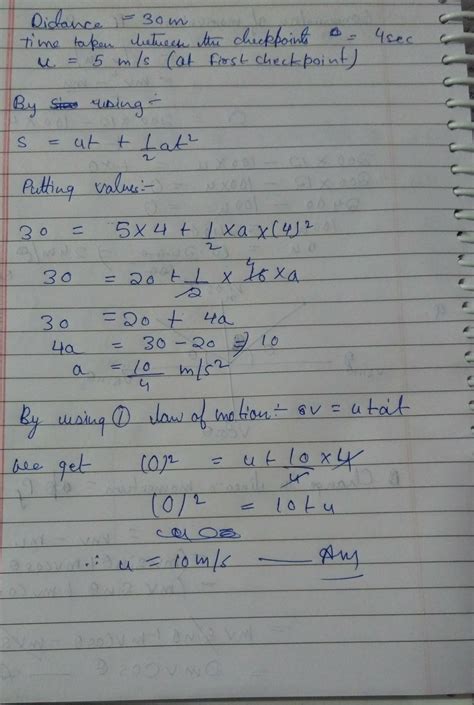 Distance = 30m
Time taken between the checkpoints = 4sec
u = 5 m/s (at first checkpoint)
By using :-
s = ut + 1/2 at²
Putting values:-
30 = 5×4 + 1/2 ×a ×(4)²
30 = 20 + 1/2 × 16 ×a
30 = 20 + 4a
4a = 30 - 20 ⇒ 10
a = 10/4 m/s²
By using ① law of motion :- v = u+at
we get (0)² = u + 10/4 × 4
(0)² = 10+u
∴ u = 10m/s — Ans